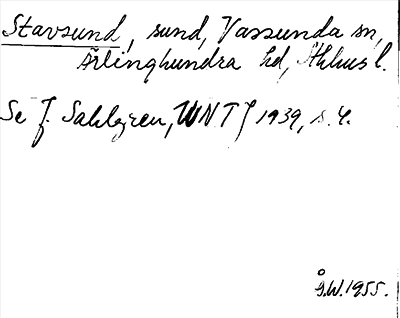 Stavsund, sund, Vassunda sn,
Ärlinghundra hd, Sthlms l.
Se J. Sahlgren, UNT 1939, s. 4.
G.W. 1955.